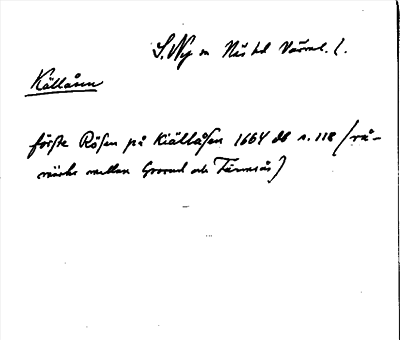 S. Ny sn Näs hd Värml. l.
Källåsen
förste Rösen på Kiällåsen 1664 db s. 118 (rå-
märke mellan Grava och Tärnsås)